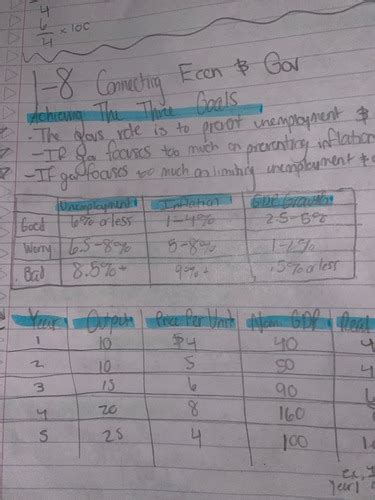 4
6/4 x 100
1-8 Connecting Econ & Gov
Achieving The Three Goals
. The govs role is to unemployment &
- If gov focuses too much on preventing inflation
- If gov focuses too much on limiting unemployment &
Unemployment Inflation GDP Growth
Good 6% or less 1-4% 2.5-5%
Worry 6.5-8% 5-8% 1-2%
Bad 8.5%+ 9%+ .5% or less
Year Output Price Per Unit Nom. GDP Real
1 10 $4 40 4
2 10 5 50 4
3 15 6 90
4 20 8 160
5 25 4 100
ex.
Year 1